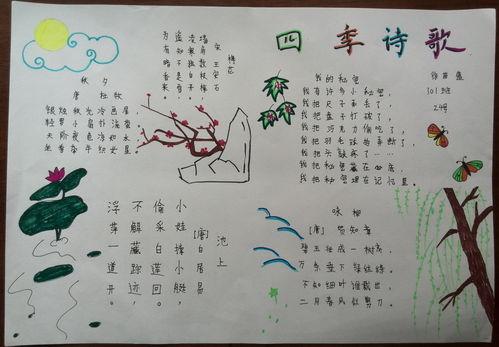 四季诗歌
101班
秋夕
唐 杜牧
银烛秋光冷画屏
轻罗小扇扑流萤
天阶夜色凉如水
坐看牵牛织女星
梅花
宋 王安石
墙角数枝梅,
凌寒独自开。
遥知不是雪,
为有暗香来。
我的秘密
我有许多小秘密
我把尺子弄丢了…
我把盘子打破了…
我把巧克力偷吃了…
我把羽毛球拍弄断了…
我把头跌疼了…
我把秘密藏在心底,
我把秘密埋在记忆里。
池上
[唐]白居易
小娃撑小艇,
偷采白莲回。
不解藏踪迹,
浮萍一道开。
咏柳
[唐] 贺知章
碧玉妆成一树高,
万条垂下绿丝绦。
不知细叶谁裁出,
二月春风似剪刀。